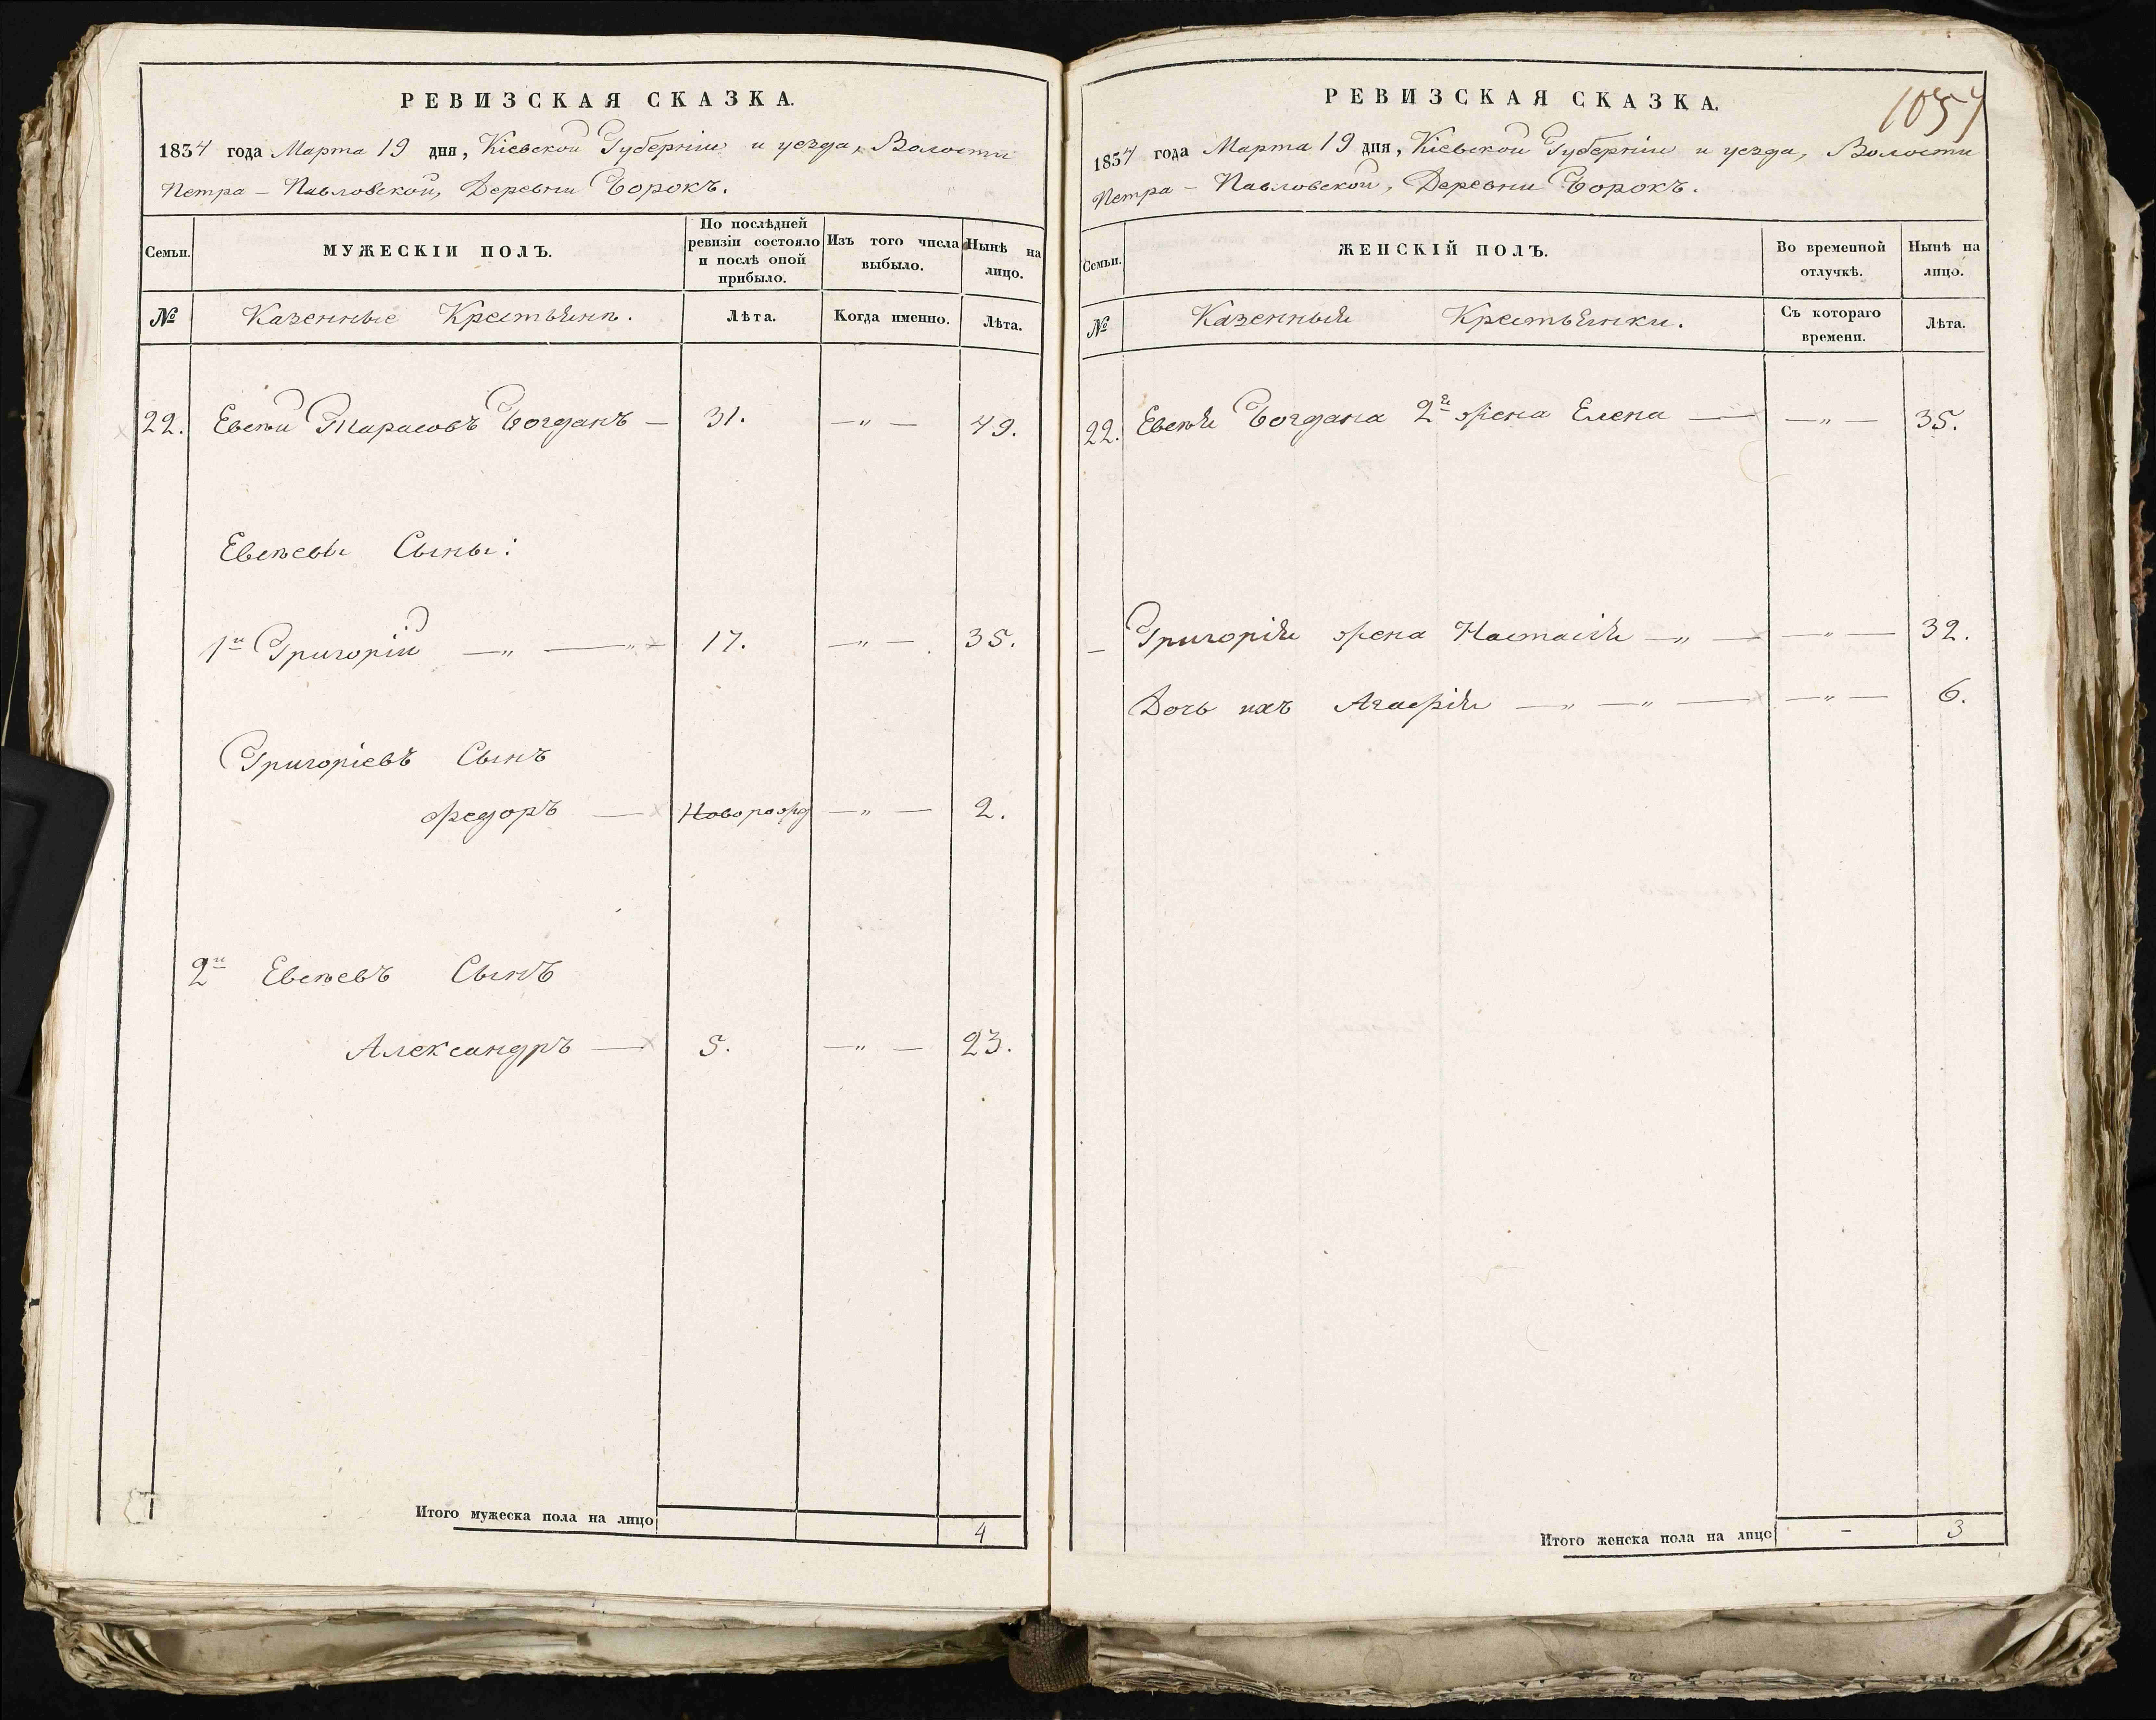 РЕВИЗСКАЯ СКАЗКА.
1834 года Марта 19 дня, Кіевской Губерніи и уезда, Волости
Петра - Павловской, Деревни Борокъ.
Семьи.
МУЖЕСКІИ ПОЛЪ.
По послѣдней
ревизіи состояло
и послѣ оной
прибыло.
Изъ того числа
выбыло.
Нынѣ на
лицо.
№
Казенные Крестьяни.
Лѣта.
Когда именно.
Лѣта.
22. Евсѣй Тарасовъ Богданъ — 31. — „ — 49.
Евсѣевы Сыны:
1й Григорій — „ — „ — 17. — „ — 35.
Григоріевъ Сынъ
Федоръ — Новорожд — „ — 2.
2й Евсѣевъ Сынъ
Александръ — 5. — „ — 23.
Итого мужеска пола на лицо 4
РЕВИЗСКАЯ СКАЗКА.
1057
1834 года Марта 19 дня, Кіевской Губерніи и уезда, Волости
Петра - Павловской, Деревни Борокъ.
Семьи.
ЖЕНСКІЙ ПОЛЪ.
Во временной
отлучкѣ.
Нынѣ на
лицо.
№
Казенныя Крестьянки.
Съ котораго
времени.
Лѣта.
22. Евсѣя Богдана 2я жена Елена — — „ — 35.
— Григорія жена Настасія — „ — — „ — 32.
Дочь ихъ Агафія — „ — „ — — „ — 6.
Итого женска пола на лицо — 3